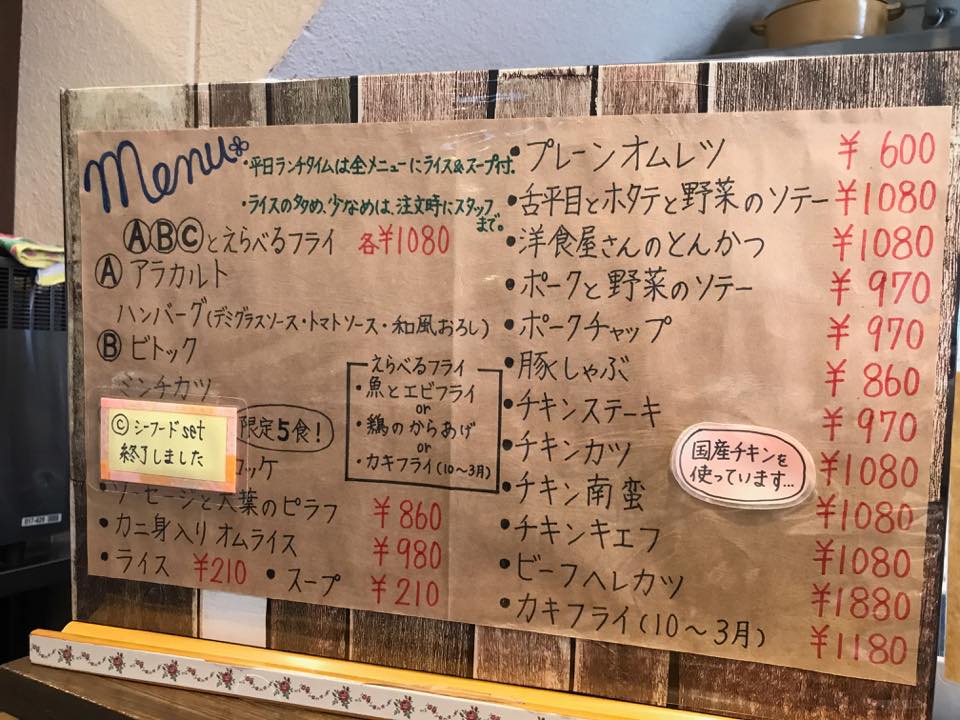 Menu
・平日ランチタイムは全メニューにライス&スープ付.
・ライスの多め、少なめは、注文時にスタッフ
まで。
ⒶⒷⒸとえらべるフライ 各¥1080
Ⓐ アラカルト
ハンバーグ(デミグラスソース・トマトソース・和風おろし)
Ⓑ ビトック
ミンチカツ
ⓒ シーフードset
終了しました
限定5食!
ロッケ
えらべるフライ
・魚とエビフライ
or
・鶏のからあげ
or
・カキフライ(10〜3月)
・ソーセージと大葉のピラフ ¥860
・カニ身入りオムライス ¥980
・ライス ¥210 ・スープ ¥210
・プレーンオムレツ ¥600
・舌平目とホタテと野菜のソテー ¥1080
・洋食屋さんのとんかつ ¥1080
・ポークと野菜のソテー ¥970
・ポークチャップ ¥970
・豚しゃぶ ¥860
・チキンステーキ ¥970
・チキンカツ ¥1080
・チキン南蛮 ¥1080
・チキンキエフ ¥1080
・ビーフヘレカツ ¥1880
・カキフライ(10〜3月) ¥1180
国産チキンを
使っています...